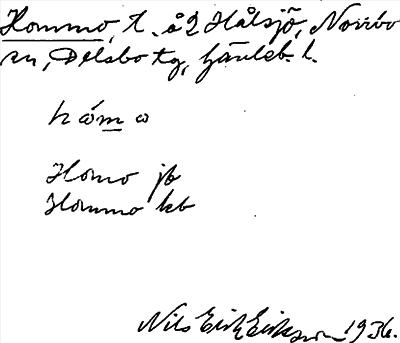 Hommo, t. å 2 Hålsjö, Norrbo
sn, Delsbo tg, Gävleb. l.
hómo
Homo jb
Hommo kb
Nils Eric Eriksson 1936.